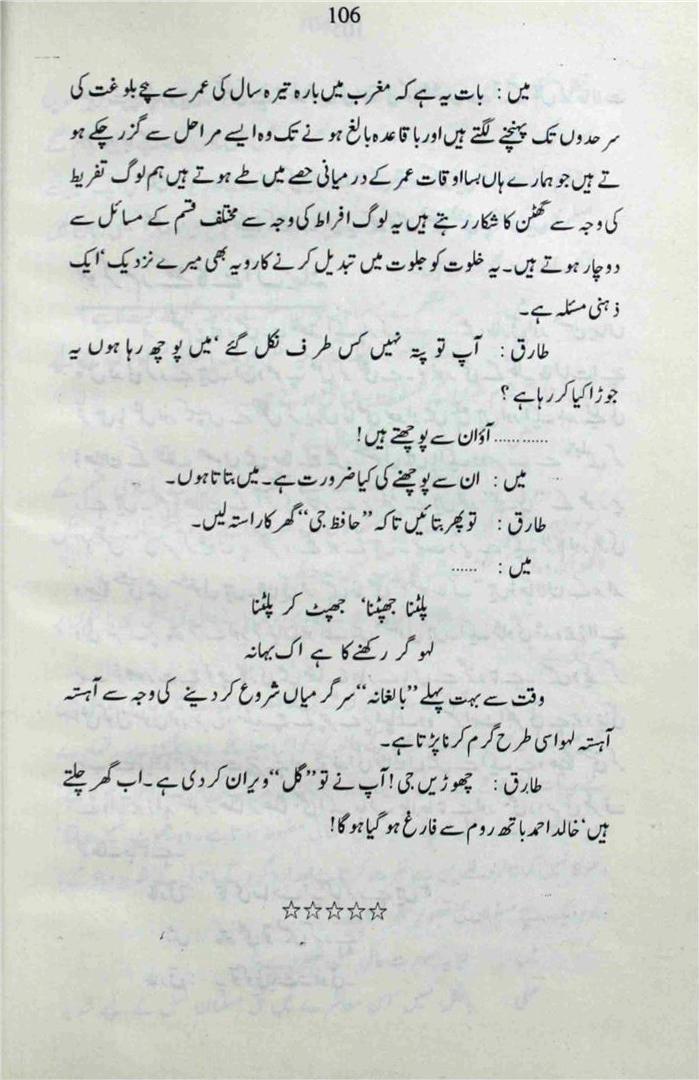 106
میں : بات یہ ہے کہ مغرب میں بارہ تیرہ سال کی عمر سے بچے بلوغت کی
سرحدوں تک پہنچنے لگتے ہیں اور باقاعدہ بالغ ہونے تک وہ ایسے مراحل سے گزر چکے ہو
تے ہیں جو ہمارے ہاں بسا اوقات عمر کے درمیانی حصے میں طے ہوتے ہیں ہم لوگ تفریط
کی وجہ سے گھٹن کا شکار رہتے ہیں یہ لوگ افراط کی وجہ سے مختلف قسم کے مسائل سے
دوچار ہوتے ہیں۔ یہ خلوت کو جلوت میں تبدیل کرنے کا رویہ بھی میرے نزدیک‘ ایک
ذہنی مسئلہ ہے۔
طارق : آپ تو پتہ نہیں کس طرف نکل گئے ‘میں پوچھ رہا ہوں یہ
جوڑا کیا کر رہا ہے ؟
............ آؤان سے پوچھتے ہیں!
میں : ان سے پوچھنے کی کیا ضرورت ہے۔ میں بتاتا ہوں۔
طارق : تو پھر بتائیں تاکہ ”حافظ جی“ گھر کا راستہ لیں۔
میں : ......
پلٹنا جھپٹنا‘ جھپٹ کر پلٹنا
لہو گر رکھنے کا ہے اک بہانہ
وقت سے بہت پہلے ”بالغانہ“ سرگرمیاں شروع کر دینے کی وجہ سے آہستہ
آہستہ لہو اسی طرح گرم کرنا پڑتا ہے۔
طارق : چھوڑیں جی! آپ نے تو ”گل“ ویران کر دی ہے۔ اب گھر چلتے
ہیں‘ خالد احمد باتھ روم سے فارغ ہو گیا ہو گا!
☆☆☆☆☆